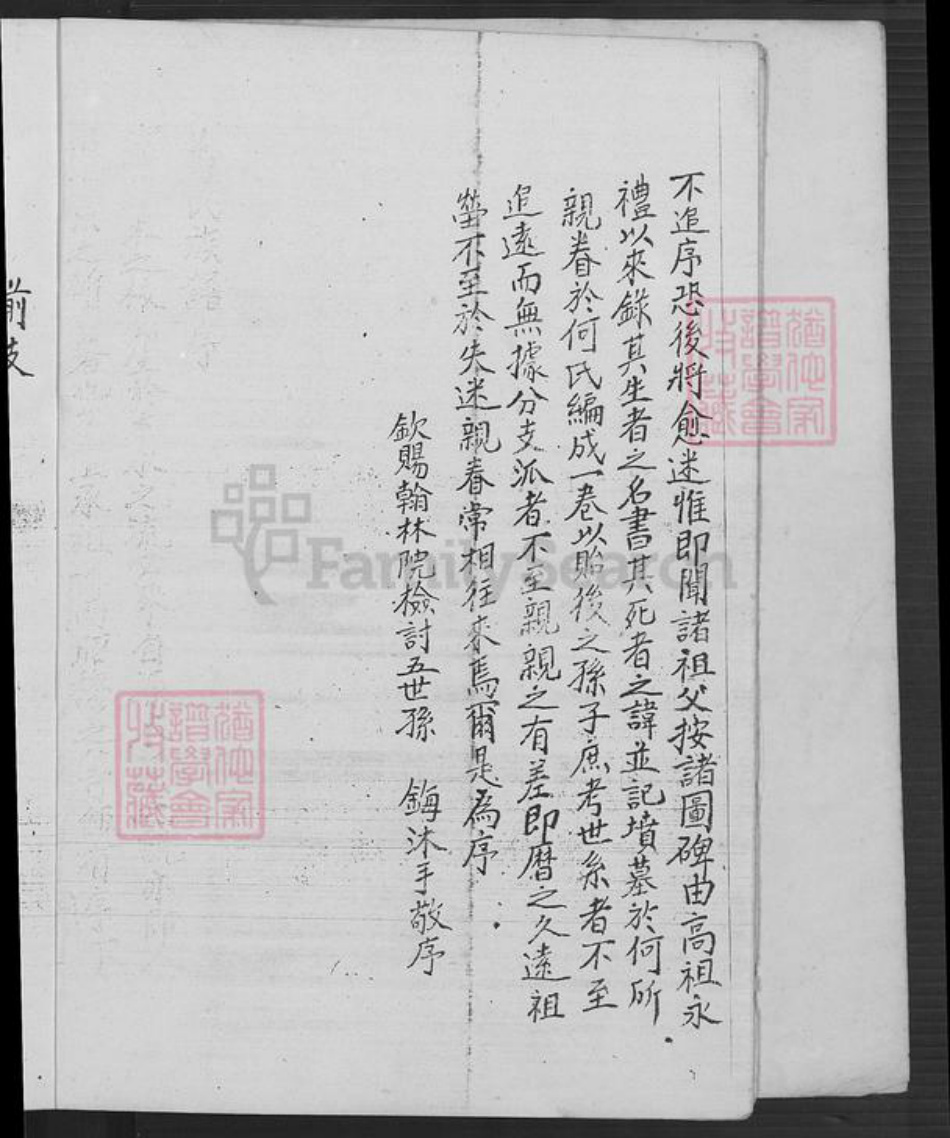 不追序恐後將愈迷惟即聞諸祖父按諸圖碑由高祖永
禮以來錄其生者之名書其死者之諱並記墳墓於何所
親眷於何氏編成一卷以貽後之孫子庶考世系者不至
追遠而無據分支派者不至親親之有差即曆之久遠祖
塋不至於失迷親眷常相往來焉爾是為序
欽賜翰林院檢討五世孫 鋂沐手敬序
前
支
猶他家
譜學會
收藏
猶他家
譜學會
收藏
FamilySearch